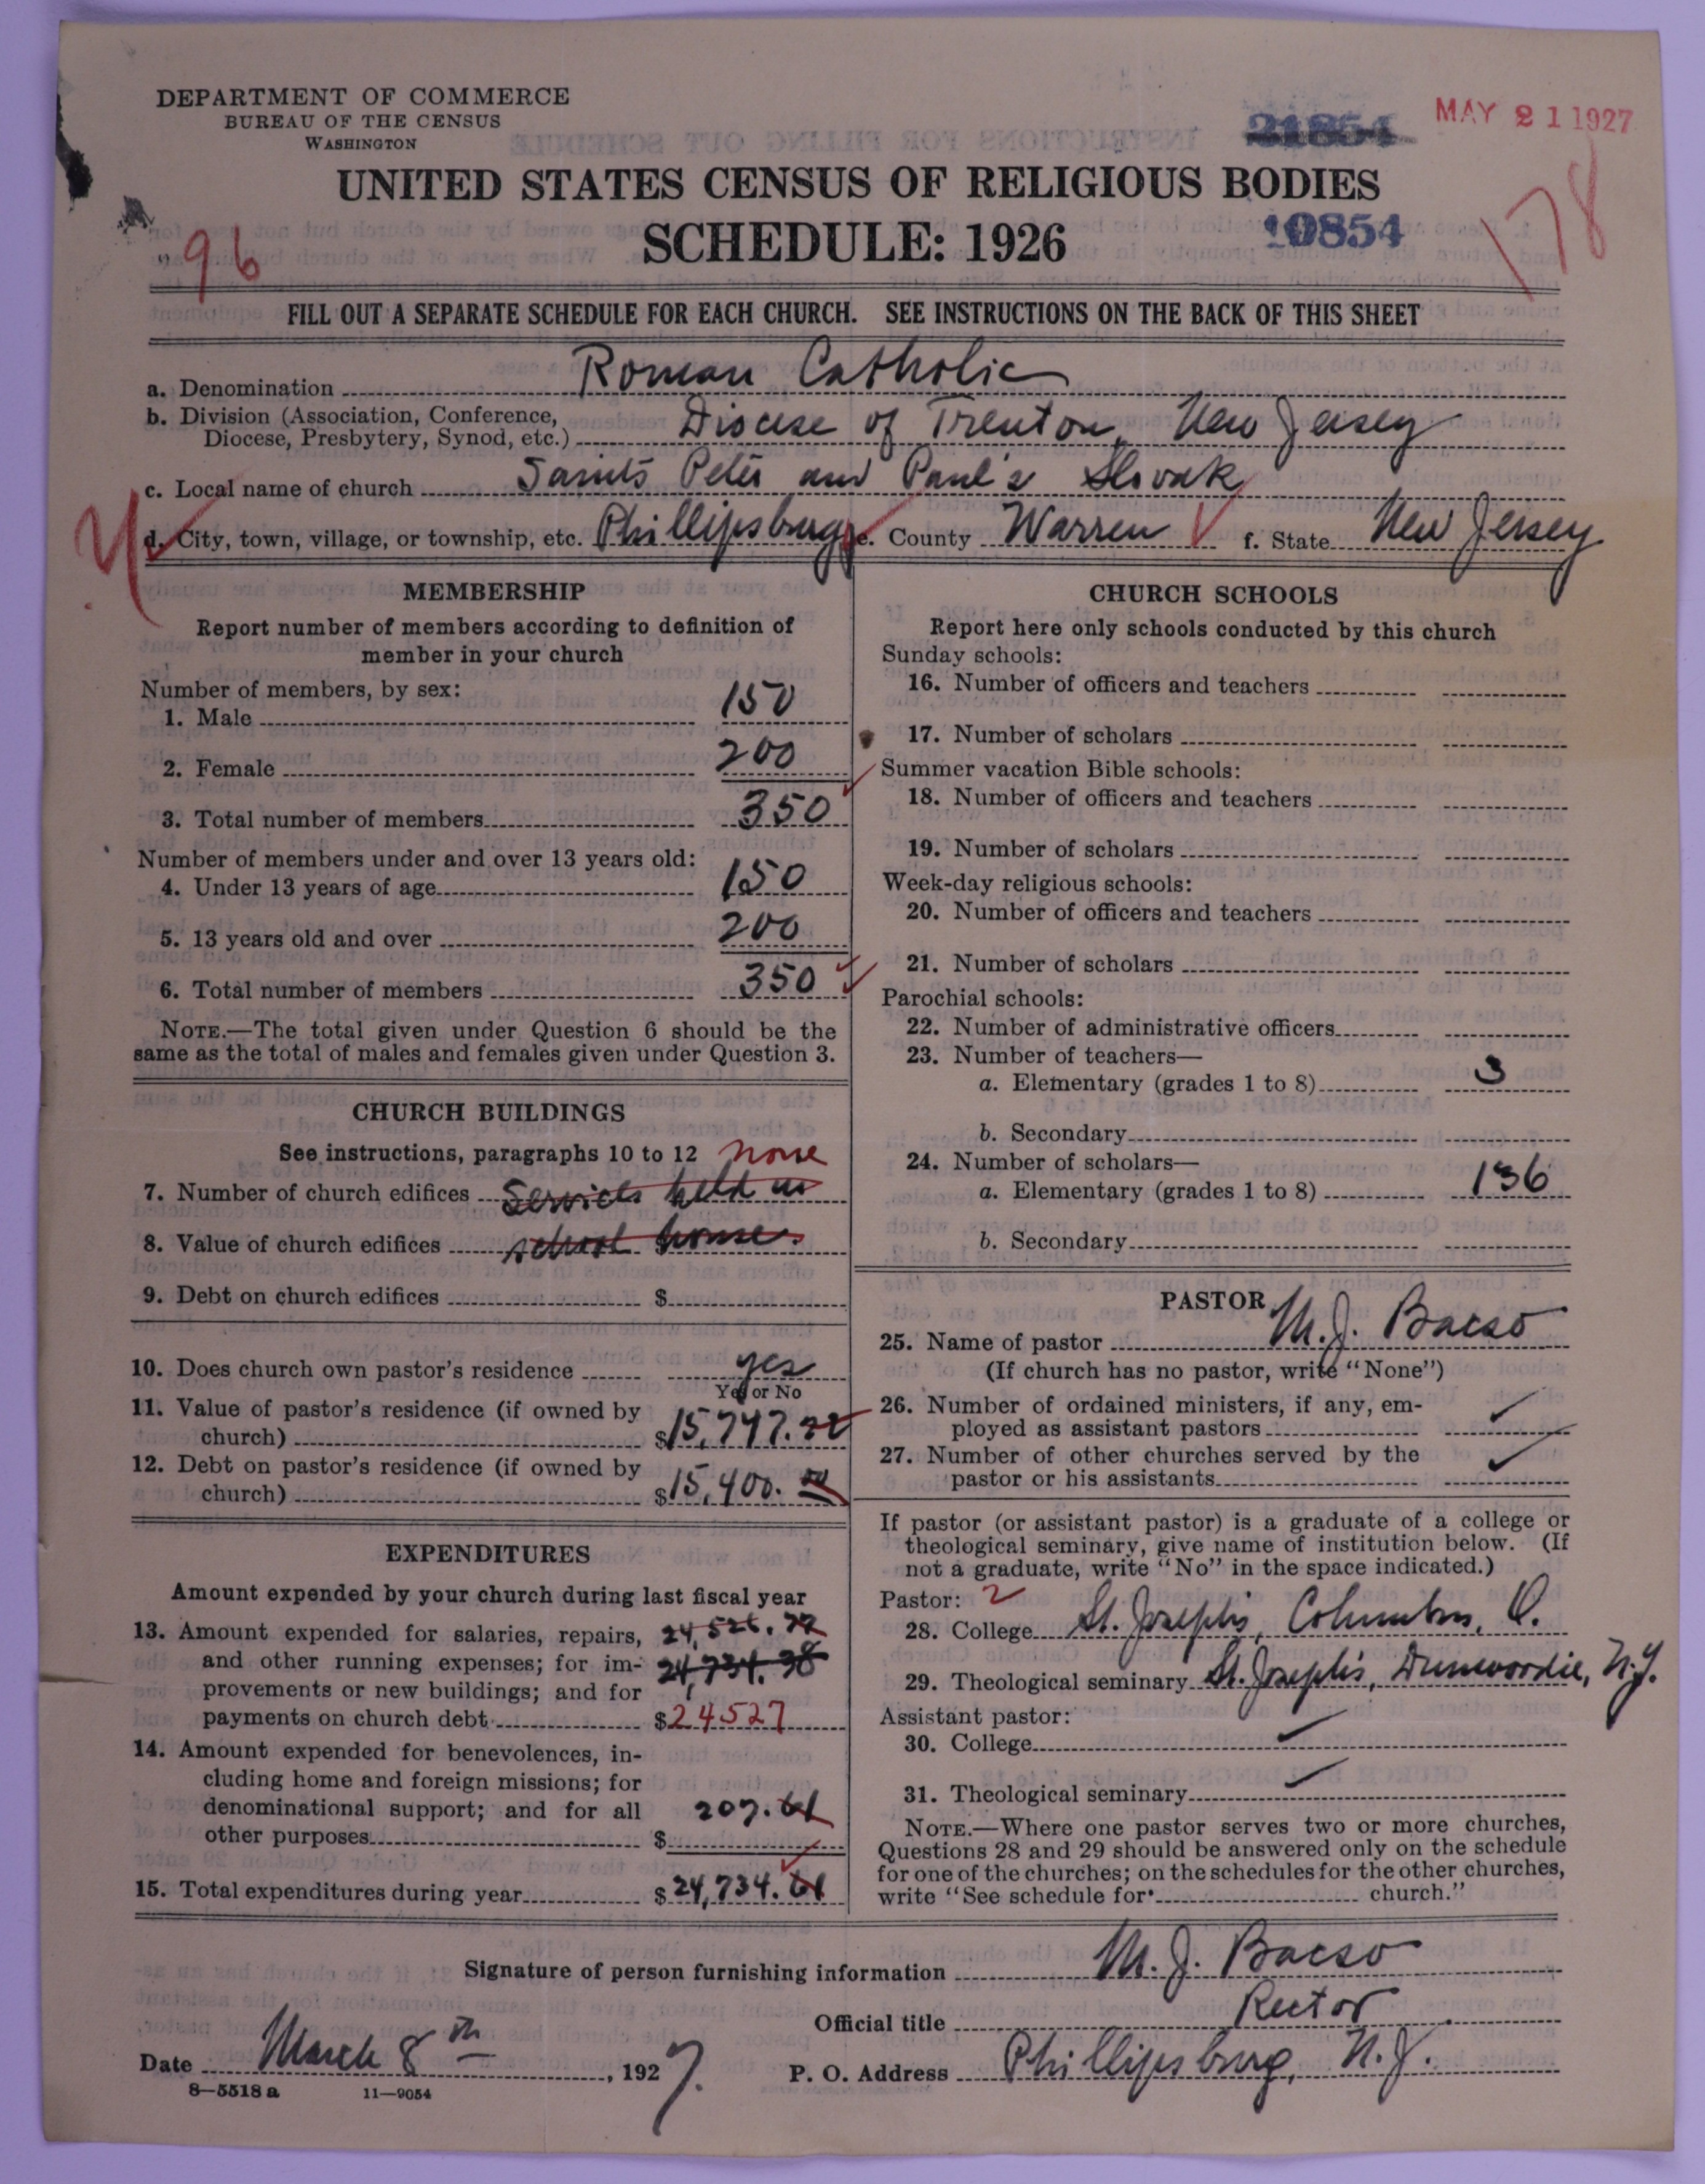 DEPARTMENT OF COMMERCE
BUREAU OF THE CENSUS
WASHINGTON
21854
MAY 21 1927
UNITED STATES CENSUS OF RELIGIOUS BODIES
SCHEDULE: 1926
10854
178
96
FILL OUT A SEPARATE SCHEDULE FOR EACH CHURCH. SEE INSTRUCTIONS ON THE BACK OF THIS SHEET
a. Denomination Roman Catholic
b. Division (Association, Conference,
Diocese, Presbytery, Synod, etc.) Diocese of Trenton, New Jersey
c. Local name of church Saints Peter and Paul's Slovak
d. City, town, village, or township, etc. Phillipsburg e. County Warren f. State New Jersey
MEMBERSHIP
Report number of members according to definition of
member in your church
Number of members, by sex:
1. Male 150
2. Female 200
3. Total number of members 350
Number of members under and over 13 years old:
4. Under 13 years of age 150
5. 13 years old and over 200
6. Total number of members 350
NOTE.—The total given under Question 6 should be the
same as the total of males and females given under Question 3.
CHURCH BUILDINGS
See instructions, paragraphs 10 to 12 none
7. Number of church edifices Services held in
8. Value of church edifices school house.
9. Debt on church edifices $
10. Does church own pastor's residence yes
Yes or No
11. Value of pastor's residence (if owned by
church) $15,747.22
12. Debt on pastor's residence (if owned by
church) $15,400.
EXPENDITURES
Amount expended by your church during last fiscal year
13. Amount expended for salaries, repairs, 24,526.77
and other running expenses; for im- 24,734.38
provements or new buildings; and for
payments on church debt $24527
14. Amount expended for benevolences, in-
cluding home and foreign missions; for
denominational support; and for all 207.61
other purposes $
15. Total expenditures during year $24,734.61
CHURCH SCHOOLS
Report here only schools conducted by this church
Sunday schools:
16. Number of officers and teachers
17. Number of scholars
Summer vacation Bible schools:
18. Number of officers and teachers
19. Number of scholars
Week-day religious schools:
20. Number of officers and teachers
21. Number of scholars
Parochial schools:
22. Number of administrative officers
23. Number of teachers—
a. Elementary (grades 1 to 8) 3
b. Secondary
24. Number of scholars—
a. Elementary (grades 1 to 8) 136
b. Secondary
PASTOR
25. Name of pastor M. J. Bacso
(If church has no pastor, write "None")
26. Number of ordained ministers, if any, em-
ployed as assistant pastors
27. Number of other churches served by the
pastor or his assistants
If pastor (or assistant pastor) is a graduate of a college or
theological seminary, give name of institution below. (If
not a graduate, write "No" in the space indicated.)
Pastor: 2
28. College St. Joseph's, Columbus, O.
29. Theological seminary St. Joseph's, Dunwoodie, N.Y.
Assistant pastor:
30. College
31. Theological seminary
NOTE.—Where one pastor serves two or more churches,
Questions 28 and 29 should be answered only on the schedule
for one of the churches; on the schedules for the other churches,
write "See schedule for church."
Signature of person furnishing information M. J. Bacso
Official title Rector
Date March 8th, 1927.
P. O. Address Phillipsburg, N.J.
8—5518 a 11—9054